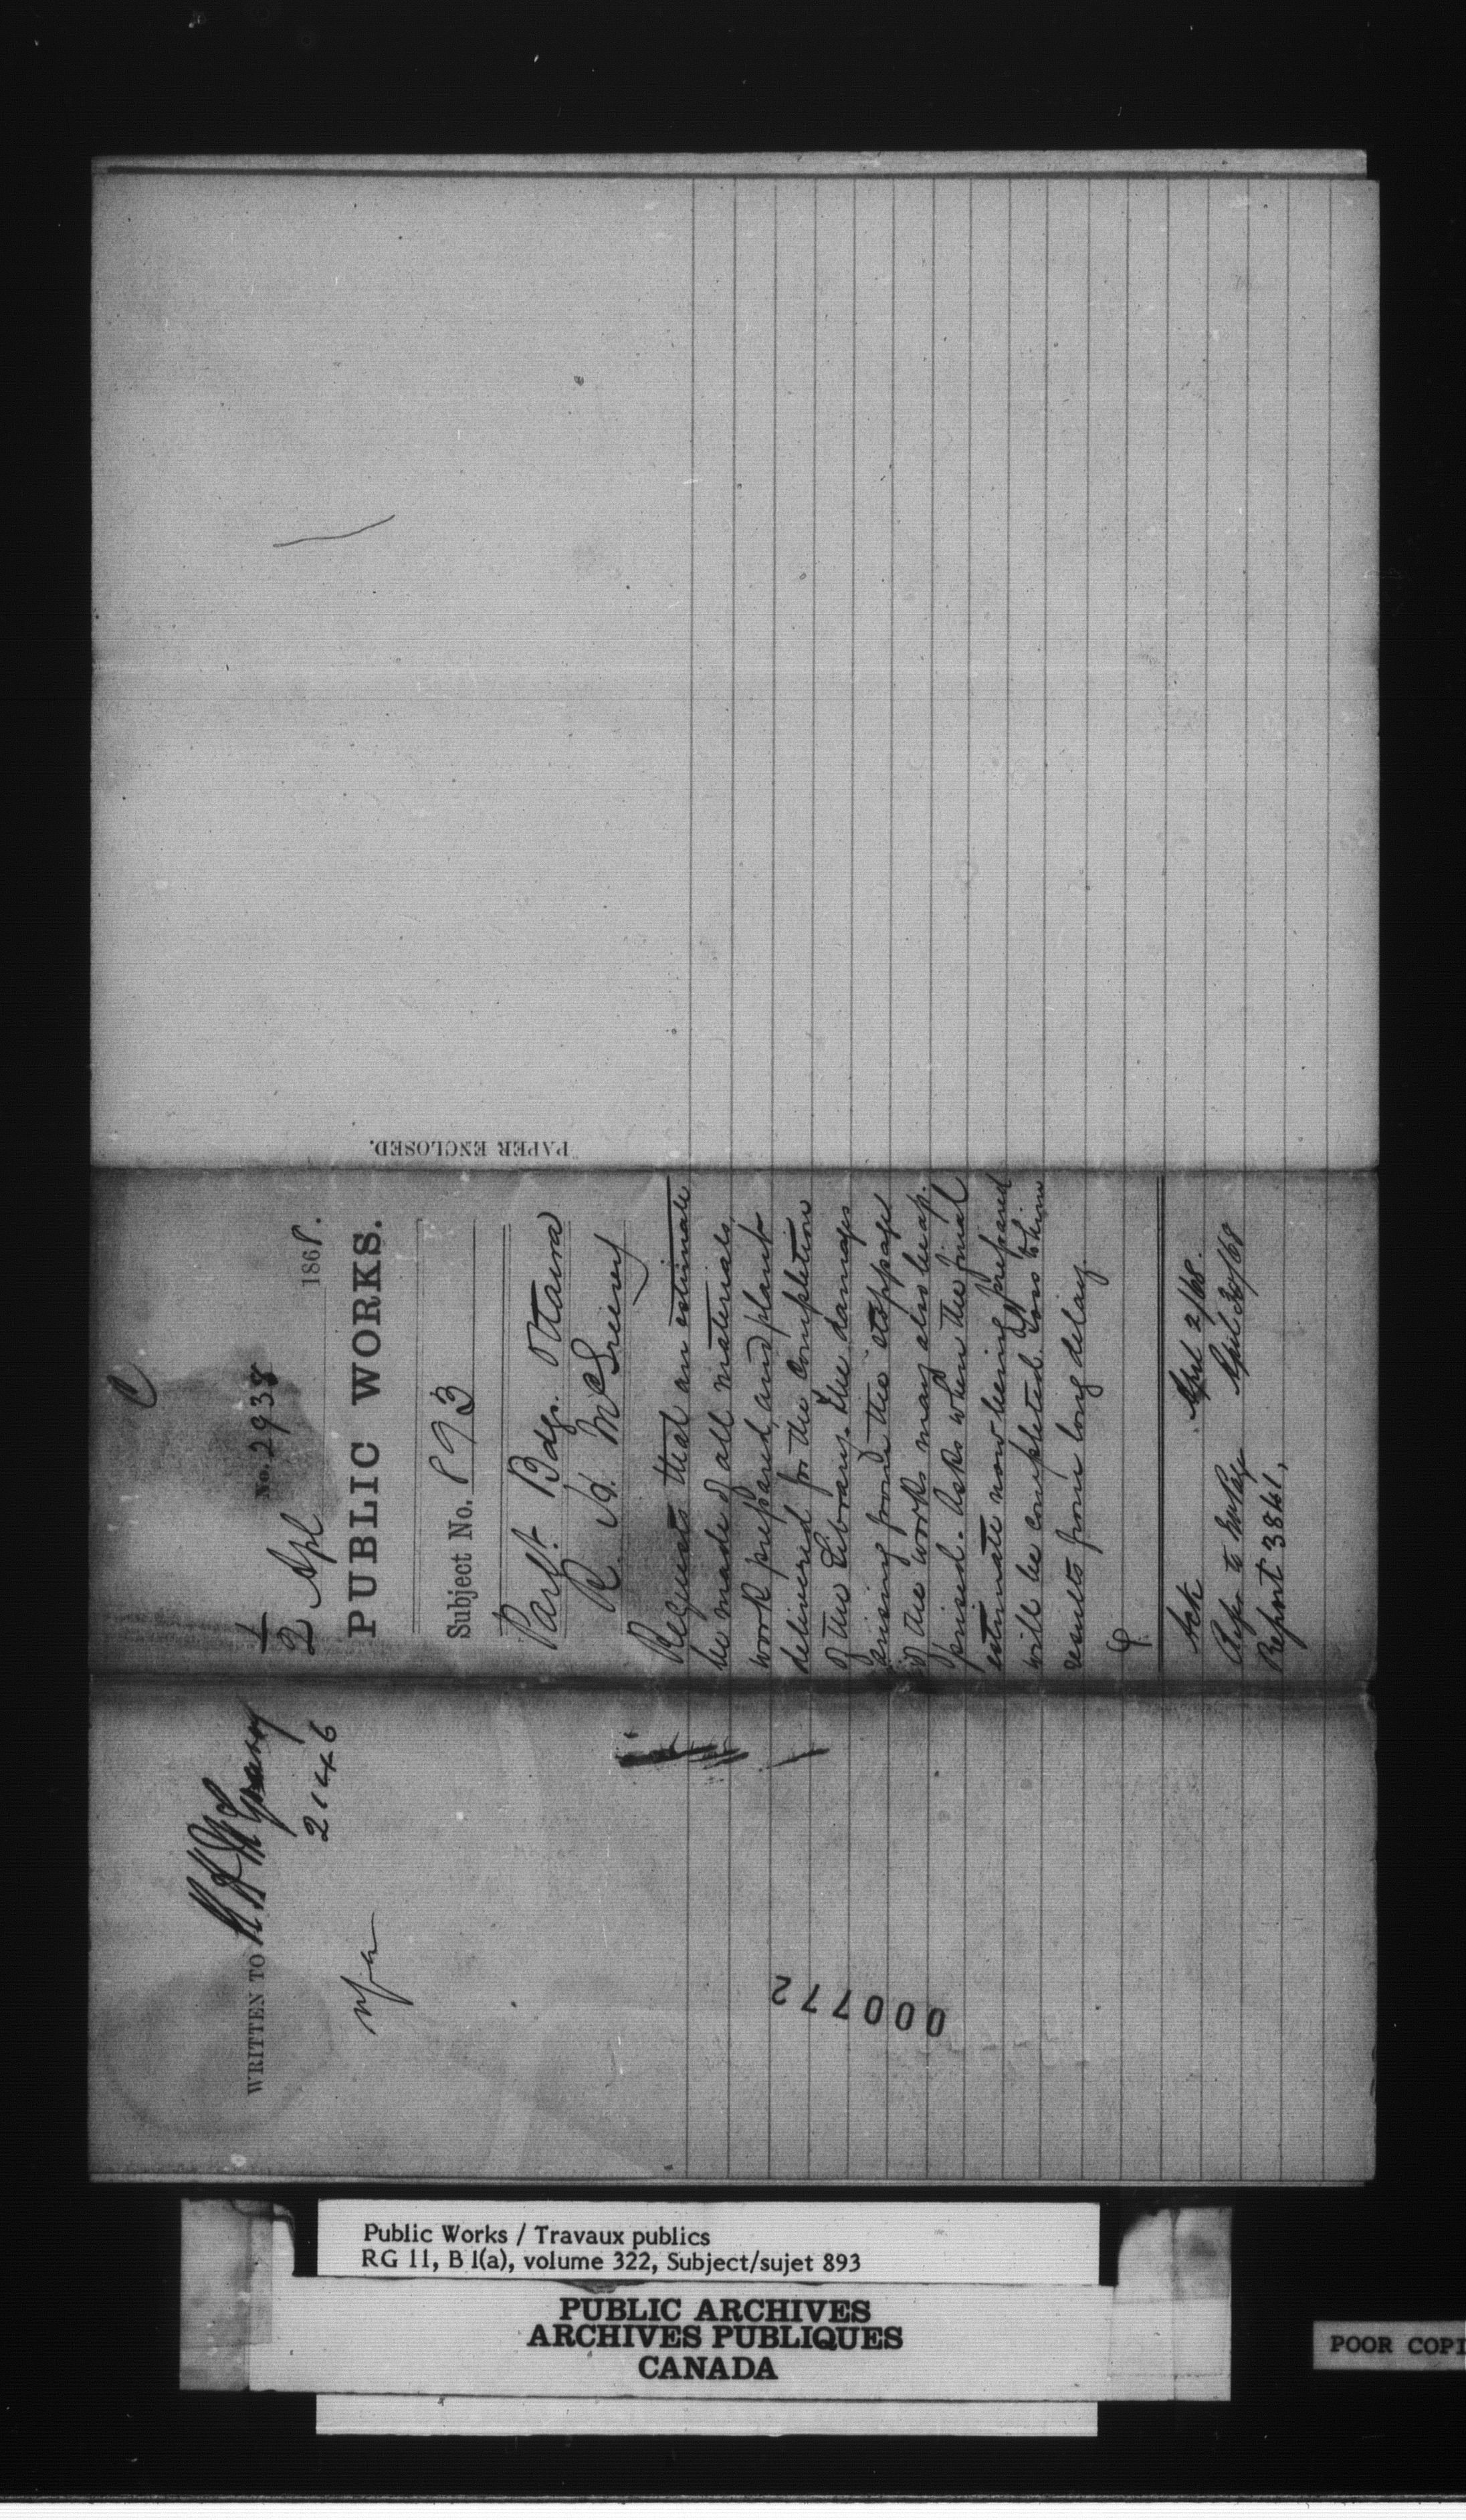 C
No. 2938
1/2 Apl 1868.
PUBLIC WORKS.
Subject No. 893
Parlt. Bdgs. Ottawa
R. H. McGreevy
Requests that an estimate
be made of all materials,
work prepared, and plant
delivered for the completion
of the Library. The damages
arising from the stoppage
of the works may also be ap-
praised. Asks when the final
estimate now being prepared
will be completed. Loss to him
results from long delay.
Ack April 2/68.
Refer to April 30/68
Report 3841,
PAPER ENCLOSED.
WRITTEN TO R H McGreevy
2146
000772
Public Works / Travaux publics
RG 11, B 1(a), volume 322, Subject/sujet 893
PUBLIC ARCHIVES
ARCHIVES PUBLIQUES
CANADA
POOR COPI